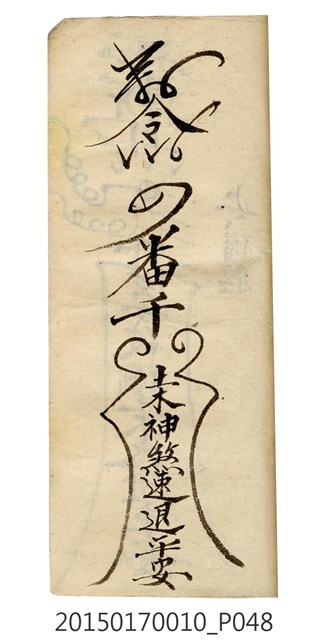 敕令
番千
土木神煞速退平安
20150170010_P048